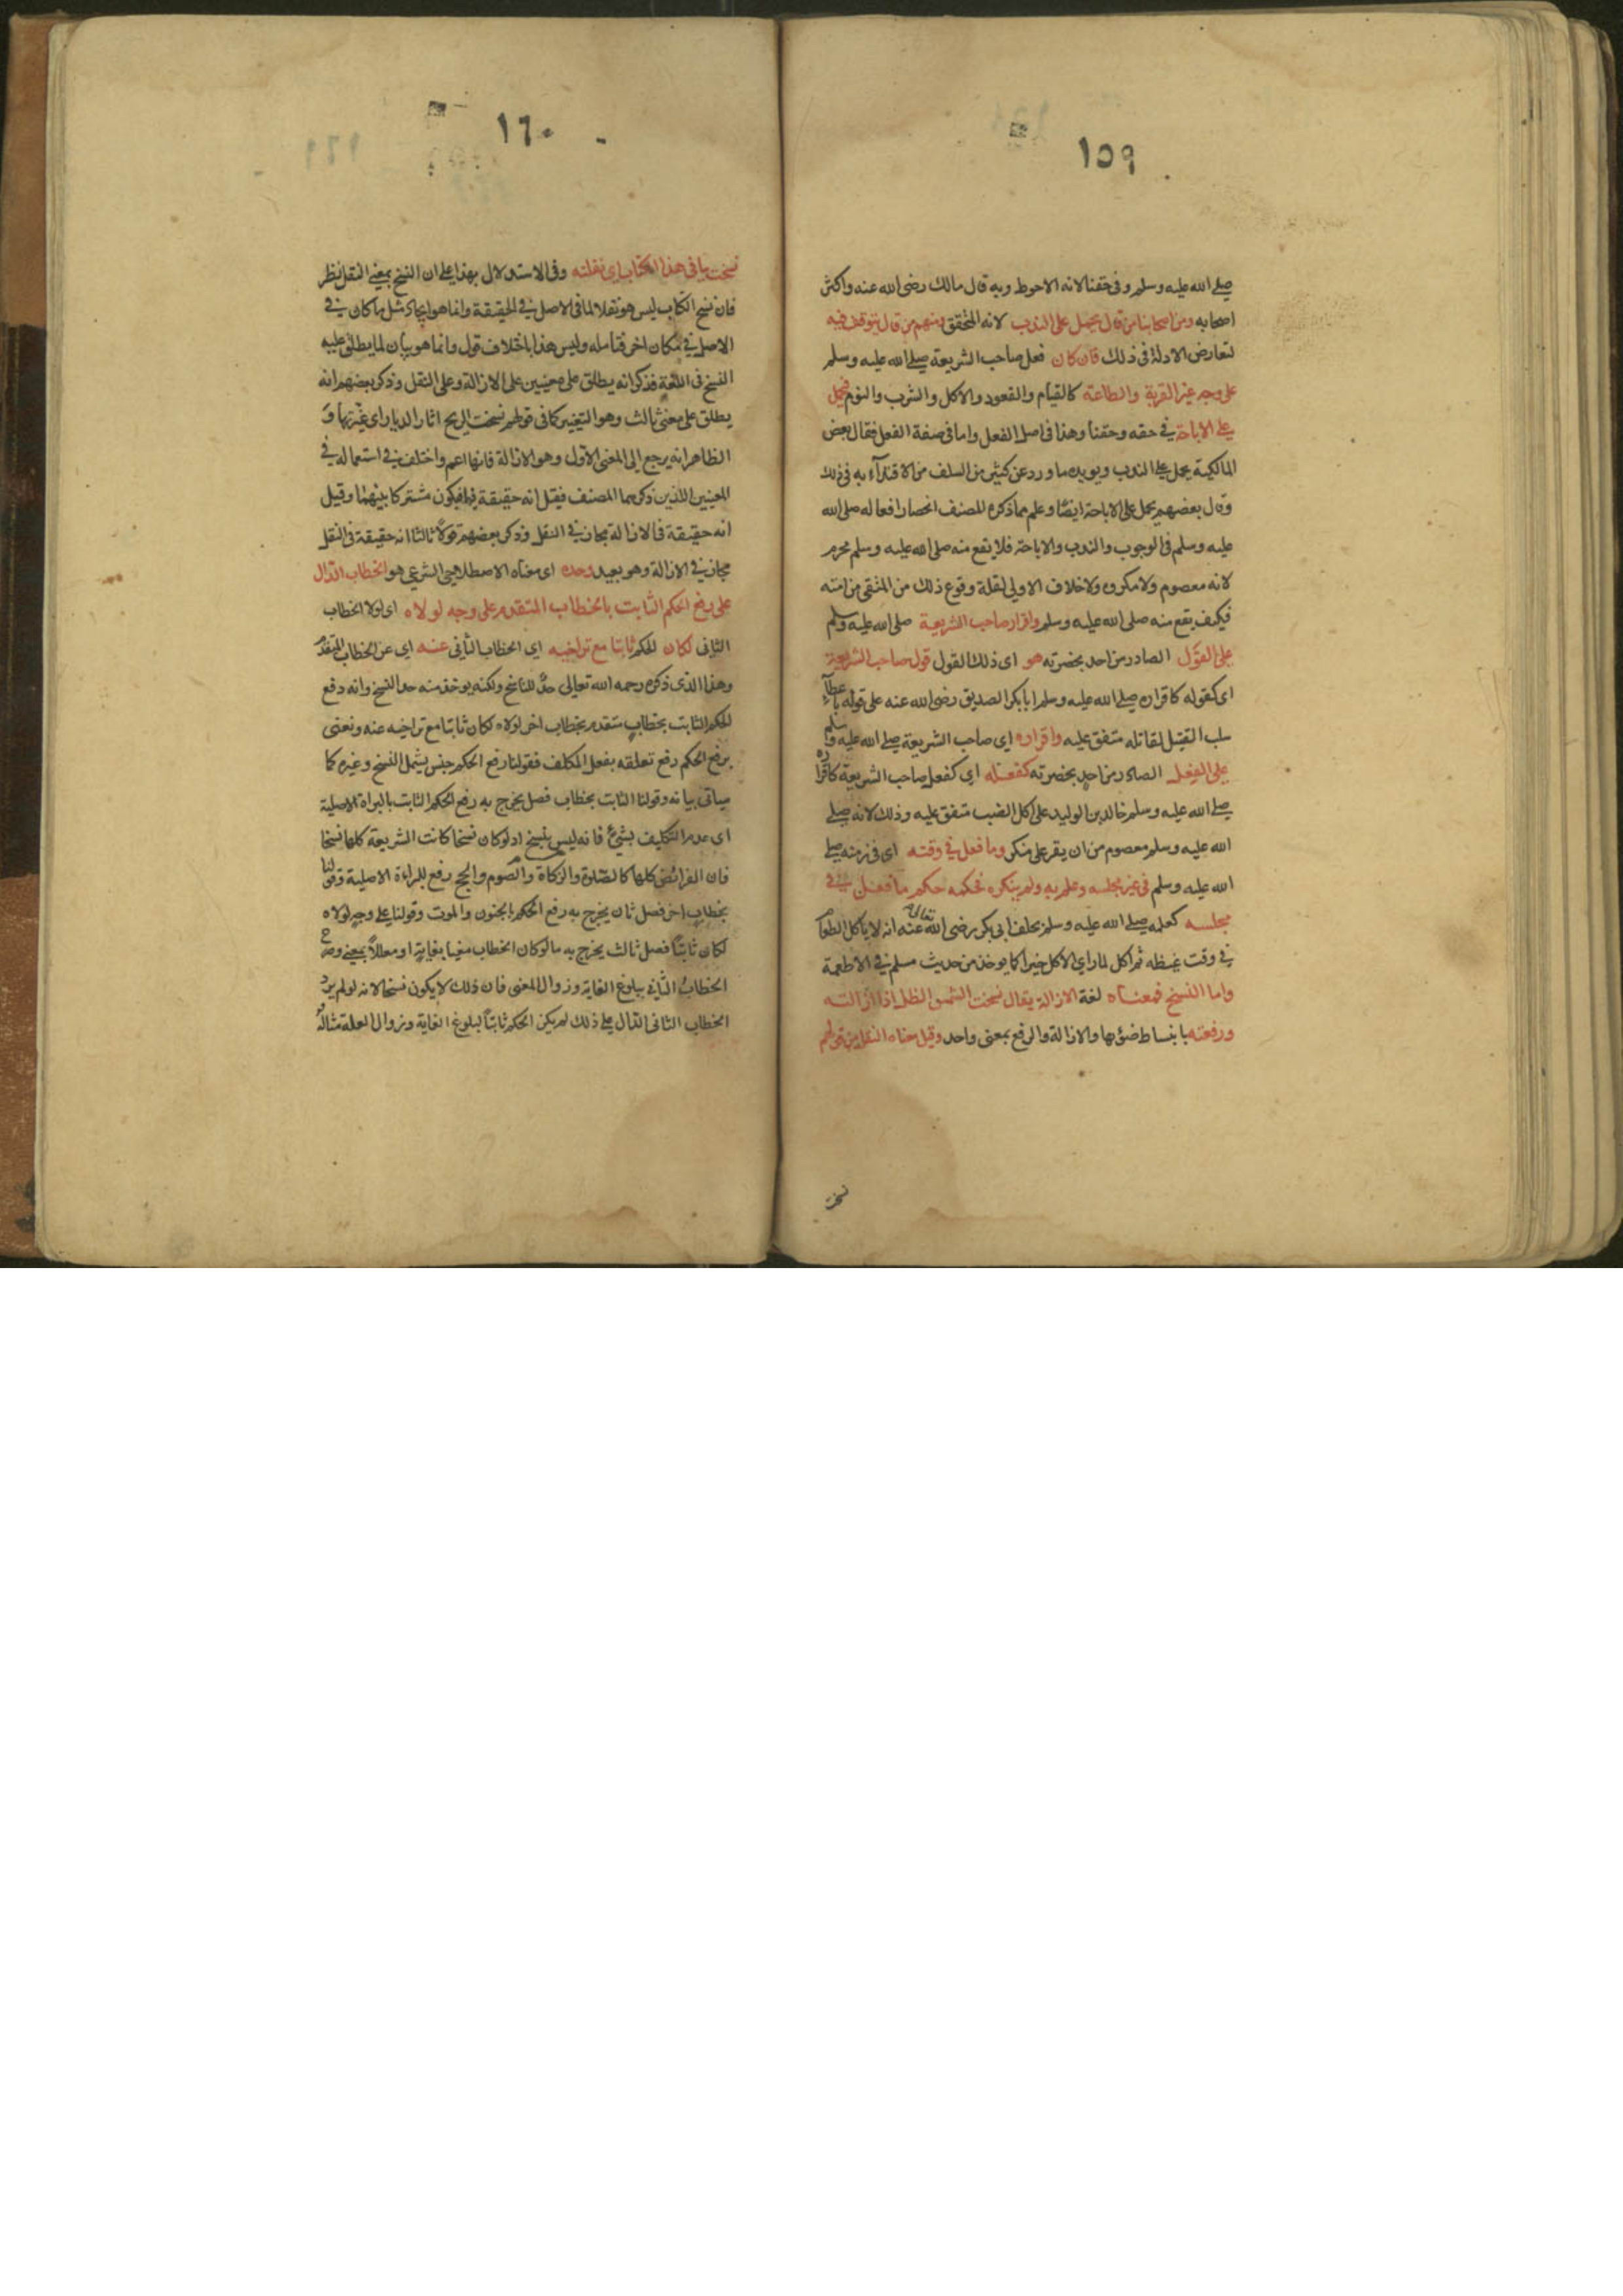 ١٥٩
صلى الله عليه وسلم وفي حقنا لانه الاحوط وبه قال مالك رضى الله عنه واكثر
اصحابه ومن اصحابنا من قال يحمل على الندب لانه المتحقق ومنهم من قال يتوقف فيه
لتعارض الادلة في ذلك فان كان فعل صاحب الشريعة صلى الله عليه وسلم
على وجه غير القربة والطاعة كالقيام والقعود والاكل والشرب والنوم فيحمل
على الاباحة في حقه وحقنا وهذا في اصل الفعل واما في صفة الفعل فقال بعض
المالكية يحمل على الندب ويويده ما ورد عن كثير من السلف من الاقتدآء به في ذلك
وقال بعضهم يحمل على الاباحة ايضًا وعلم مما ذكره المصنف انحصار افعاله صلى الله
عليه وسلم في الوجوب والندب والاباحة فلا يقع منه صلى الله عليه وسلم محرم
لانه معصوم ولا مكروه ولا خلاف الاولى لقلة وقوع ذلك من المتقى من امته
فكيف يقع منه صلى الله عليه وسلم واقرار صاحب الشريعة صلى الله عليه وسلم
على القول الصادر من احد بحضرته هو اى ذلك القول قول صاحب الشريعة
اى كقوله كاقراره صلى الله عليه وسلم ابا بكر الصديق رضى الله عنه على قوله باعطآء
سلب القتيل لقاتله متفق عليه واقراره اى صاحب الشريعة صلى الله عليه وسلم
على الفعل الصادر من احد بحضرته كفعله اى كفعل صاحب الشريعة كاقراره
صلى الله عليه وسلم خالد بن الوليد على اكل الضب متفق عليه وذلك لانه صلى
الله عليه وسلم معصوم من ان يقر على منكر وما فعل في وقته اى في زمنه صلى
الله عليه وسلم في غير مجلسه وعلم به ولم ينكره فحكمه حكم ما فعل في
مجلسه كعلمه صلى الله عليه وسلم بحلف ابى بكر رضى الله تعالى عنه انه لا ياكل الطعام
في وقت غيظه ثم اكل لما راى الاكل خيرا كما يوخذ من حديث مسلم في الاطعمة
واما النسخ فمعناه لغة الازالة يقال نسخت الشمس الظل اذا ازالته
ورفعته بانبساط ضوئها والازالة والرفع بمعنى واحد وقيل معناه النقل من قولهم
نسخت
١٦٠
نسخت ما في هذا الكتاب اى نقلته وفي الاستدلال بهذا على ان النسخ بمعنى النقل نظر
فان نسخ الكتاب ليس هو نقلا لما في الاصل في الحقيقة وانما هو ايجاد مثل ما كان في
الاصل في مكان اخر فتأمله وليس هذا باختلاف قول وانما هو بيان لما يطلق عليه
النسخ في اللغة فذكر انه يطلق على معنيين على الازالة وعلى النقل وذكر بعضهم انه
يطلق على معنى ثالث وهو التغيير كما في قولهم نسخت الريح اثار الديار اى غيرتها و
الظاهر انه يرجع الى المعنى الاول وهو الازالة فانها اعم واختلف في استعماله في
المعنيين اللذين ذكرهما المصنف فقيل انه حقيقة فيهما فيكون مشتركا بينهما وقيل
انه حقيقة في الازالة مجاز في النقل وذكر بعضهم قولًا ثالثا انه حقيقة في النقل
مجاز في الازالة وهو بعيد وحده اى معناه الاصطلاحى الشرعى هو الخطاب الدال
على رفع الحكم الثابت بالخطاب المتقدم على وجه لولاه اى لولا الخطاب
الثانى لكان الحكم ثابتا مع تراخيه اى الخطاب الثانى عنه اى عن الخطاب المتقدم
وهذا الذى ذكره رحمه الله تعالى حدّ للناسخ ولكنه يوخذ منه حد النسخ وانه رفع
الحكم الثابت بخطاب متقدم بخطاب اخر لولاه لكان ثابتا مع تراخيه عنه ونعنى
برفع الحكم رفع تعلقه بفعل المكلف فقولنا رفع الحكم جنس يشمل النسخ وغيره كما
سياتى بيانه وقولنا الثابت بخطاب فصل يخرج به رفع الحكم الثابت بالبراة الاصلية
اى عدم التكليف بشئ فانه ليس بنسخ اذ لو كان نسخا كانت الشريعة كلها نسخا
فان الفرائض كلها كالصلوة والزكاة والصوم والحج رفع للبراءة الاصلية وقولنا
بخطاب اخر فصل ثان يخرج به رفع الحكم بالجنون والموت وقولنا على وجه لولاه
لكان ثابتًا فصل ثالث يخرج به ما لو كان الخطاب مغيا بغاية او معللًا بمعنى وصرح
الخطاب الثاني ببلوغ الغاية وزوال المعنى فان ذلك لا يكون نسخا لانه لو لم يرد
الخطاب الثانى الدال على ذلك لم يكن الحكم ثابتًا لبلوغ الغاية وزوال العلة مثاله